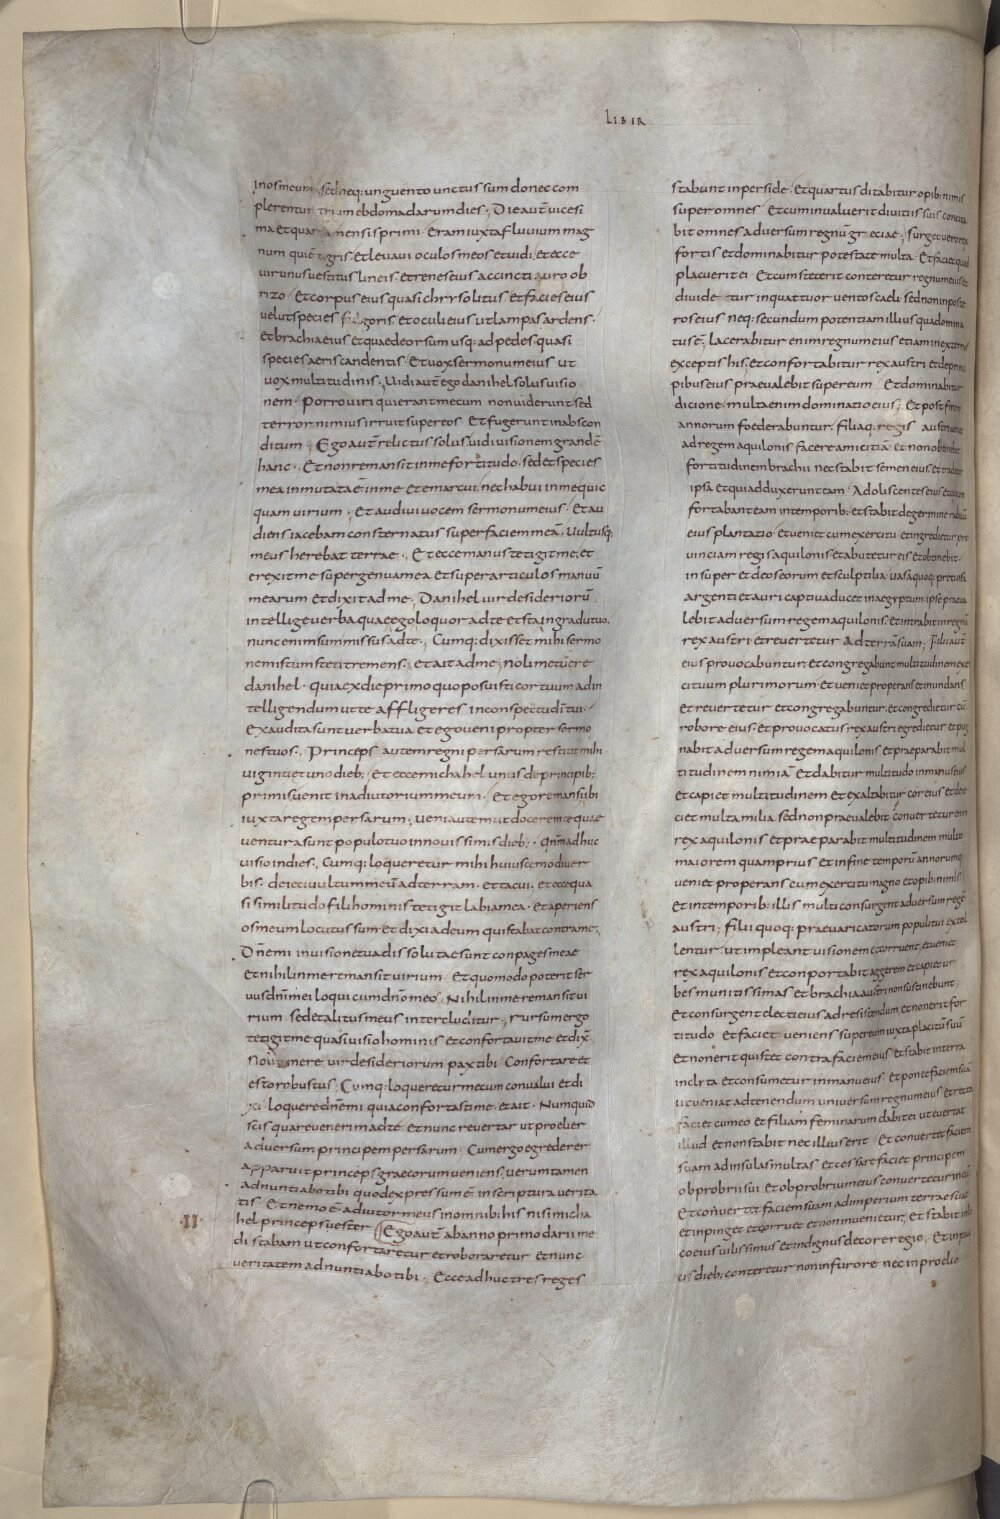 LIBER
in os meum sed neq: unguento unctus sum donec com
plerentur trium ebdomadarum dies. Die aut̄ vicesi
ma et quarta mensis primi. Eram iuxta fluvium mag
num qui ē tigris. et levavi oculos meos et vidi. et ecce
vir unus vestitus lineis. et renes eius accincti auro ob
rizo. Et corpus eius quasi chrysolitus et facies eius
velut species fulgoris. et oculi eius ut lampas ardens.
et brachia eius et quae deorsum usq: ad pedes. quasi
species aeris candentis. Et vox sermonum eius ut
vox multitudinis. Vidi aut̄ ego danihel solus visio
nem. Porro viri qui erant mecum non viderunt. sed
terror nimius irruit super eos. Et fugerunt in abscon
ditum. Ego aut̄ relictus solus vidi visionem grandē
hanc. Et non remansit in me fortitudo. sed et species
mea inmutata ē in me et emarcui. nec habui in me quic
quam virium. Et audivi vocem sermonum eius. Et au
diens iacebam consternatus super faciem meā. Vultusq:
meus herebat terrae. Et ecce manus tetigit me. et
erexit me super genua mea et super articulos manuū
mearum et dixit ad me. Danihel vir desideriorū
intellige verba quae ego loquor ad te et sta in gradu tuo.
nunc enim sum missus ad te. Cumq: dixisset mihi sermo
nem istum steti tremens. et ait ad me. noli metuere
danihel. quia ex die primo quo posuisti cor tuum ad in
telligendum ut te affligeres in conspectu dī tui.
Exaudita sunt verba tua et ego veni propter sermo
nes tuos. Princeps autem regni persarum restitit mihi
viginti et uno dieb; et ecce michahel unus de principib;
primis venit in adiutorium meum. et ego remansi ibi
iuxta regem persarum; veni autem ut docerem te quae
ventura sunt populo tuo in novissimis dieb; Qnm̄ adhuc
visio in dies. Cumq: loqueretur mihi huiuscemodi ver
bis. deieci vultum meū ad terram. et tacui. et ecce qua
si similitudo filii hominis tetigit labia mea. et aperiens
os meum locutus sum. et dixi ad eum qui stabat contra me,
Dn̄e mi in visione tua dissolutae sunt conpages meae
et nihil in me remansit virium. Et quomodo poterit ser
vus dn̄i mei loqui cum dn̄o meo. Nihil in me remansit vi
rium. sed et alitus meus intercluditur; rursum ergo
tetigit me quasi visio hominis et confortavit me et dix̄.
Noli timere vir desideriorum pax tibi. Confortare et
esto robustus; Cumq: loqueretur mecum convalui et di
xi. loquere dn̄e mi quia confortasti me. et ait. Numquid
scis quare venerim ad te. et nunc revertar ut proelier
adversum principem persarum. Cum ergo egrederer
apparuit princeps graecorum veniens, verumtamen
adnuntiabo tibi quod expressum ē in scriptura verita
tis. Et nemo ē adiutor meus in omnibus his nisi micha
hel princeps vester. Ego aut̄ ab anno primo darii me
II
di stabam ut confortaretur et roboraretur. et nunc
veritatem adnuntiabo tibi. Ecce adhuc tres reges
stabunt in perside. Et quartus ditabitur opib: nimis
super omnes. Et cum invaluerit divitiis suis concita
bit omnes adversum regnū greciae; surget vero rex
fortis et dominabitur potestate multa. Et faciet quod
placuerit ei. Et cum steterit conteretur regnum eius et
dividetur in quattuor ventos caeli. sed non in poste
ros eius. neq: secundum potentiam illius qua domina
tus ē; lacerabitur enim regnum eius etiam in exteros
exceptis his. et confortabitur rex austri et de princi
pibus eius praevalebit super eum. Et dominabitur
dicione. multa enim dominatio eius; Et post finem
annorum foederabuntur. filiaq: regis austri veniet
ad regem aquilonis facere amicitiā. et non obtinebit
fortitudinem brachii nec stabit semen eius. et tradetur
ipsa. et qui adduxerunt eam. Adoliscentes eius et qui con
fortabant eam in temporib: et stabit de germine radicū
eius plantatio. et veniet cum exercitu. et ingredietur pro
vinciam regis aquilonis et abutetur eis et obtinebit.
insuper et deos eorum et sculptilia. vasa quoq: pretiosa
argenti et auri captiva ducet in aegyptum. ipse praeva
lebit adversum regem aquilonis. et intrabit in regnū
rex austri et revertetur ad terrā suam; filii aut̄
eius provocabuntur. et congregabunt multitudinem exer
cituum plurimorum. et veniet properans et inundans
et revertetur et congregabuntur. et congredietur cū
robore eius. et provocatus rex austri egredietur et pug
nabit adversum regem aquilonis. et praeparabit mul
titudinem nimiā. Et dabitur multitudo in manus eius
et capiet multitudinem et exaltabitur cor eius et deii
ciet multa milia sed non praevalebit. Convertetur enim
rex aquilonis et praeparabit multitudinem multo
maiorem quam prius et in fine temporū annorumq:
veniet properans cum exercitu magno et opib: nimis
et in temporib: illis multi consurgent adversum regē
austri; filii quoq: praevaricatorum populi tui extol
lentur. ut impleant visionem et corruent. et veniet
rex aquilonis et conportabit aggerem et capiet ur
bes munitissimas. et brachia austri non sustinebunt.
et consurgent electi eius ad resistendum. et non erit for
titudo. et faciet veniens super eum iuxta placitū suū
et non erit qui stet contra faciem eius. et stabit in terra
inclita et consumetur in manu eius. et ponet faciem suā
ut veniat ad tenendum universum regnum eius. et recta
faciet cum eo. et filiam feminarum dabit ei ut evertat
illud. et non stabit nec illius erit. Et convertet faciem
suam ad insulas multas et cessare faciet principem
obprobrii sui. et obprobrium eius convertetur in eū
et convertet faciem suam ad imperium terrae suae
et inpinget et corruet et non invenietur. et stabit in lo
co eius vilissimus et indignus decore regio. et in pau
cis dieb: conteretur non in furore nec in proelio